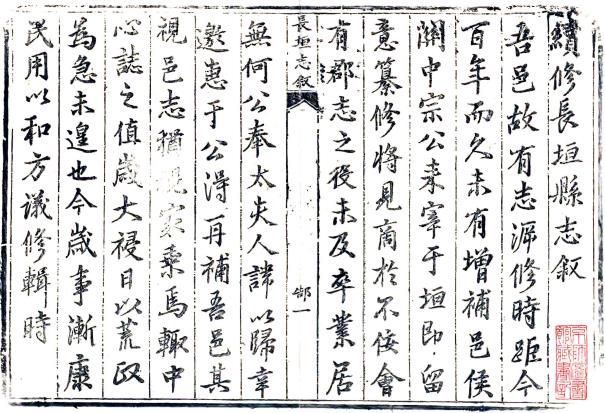 續修長垣縣志敘
吾邑故有志溯修時距今
百年而久未有增補邑侯
關中宗公來宰于垣即留
意纂修將見商於不佞會
有郡志之役未及卒業居
長垣志敘
郜一
無何公奉太夫人諱以歸幸
邀惠于公得再補吾邑其
視邑志猶視家乘焉輙中
心誌之值歲大祲日以荒政
為急未遑也今歲事漸康
民用以和方議修輯時
京師圖書
館藏書記